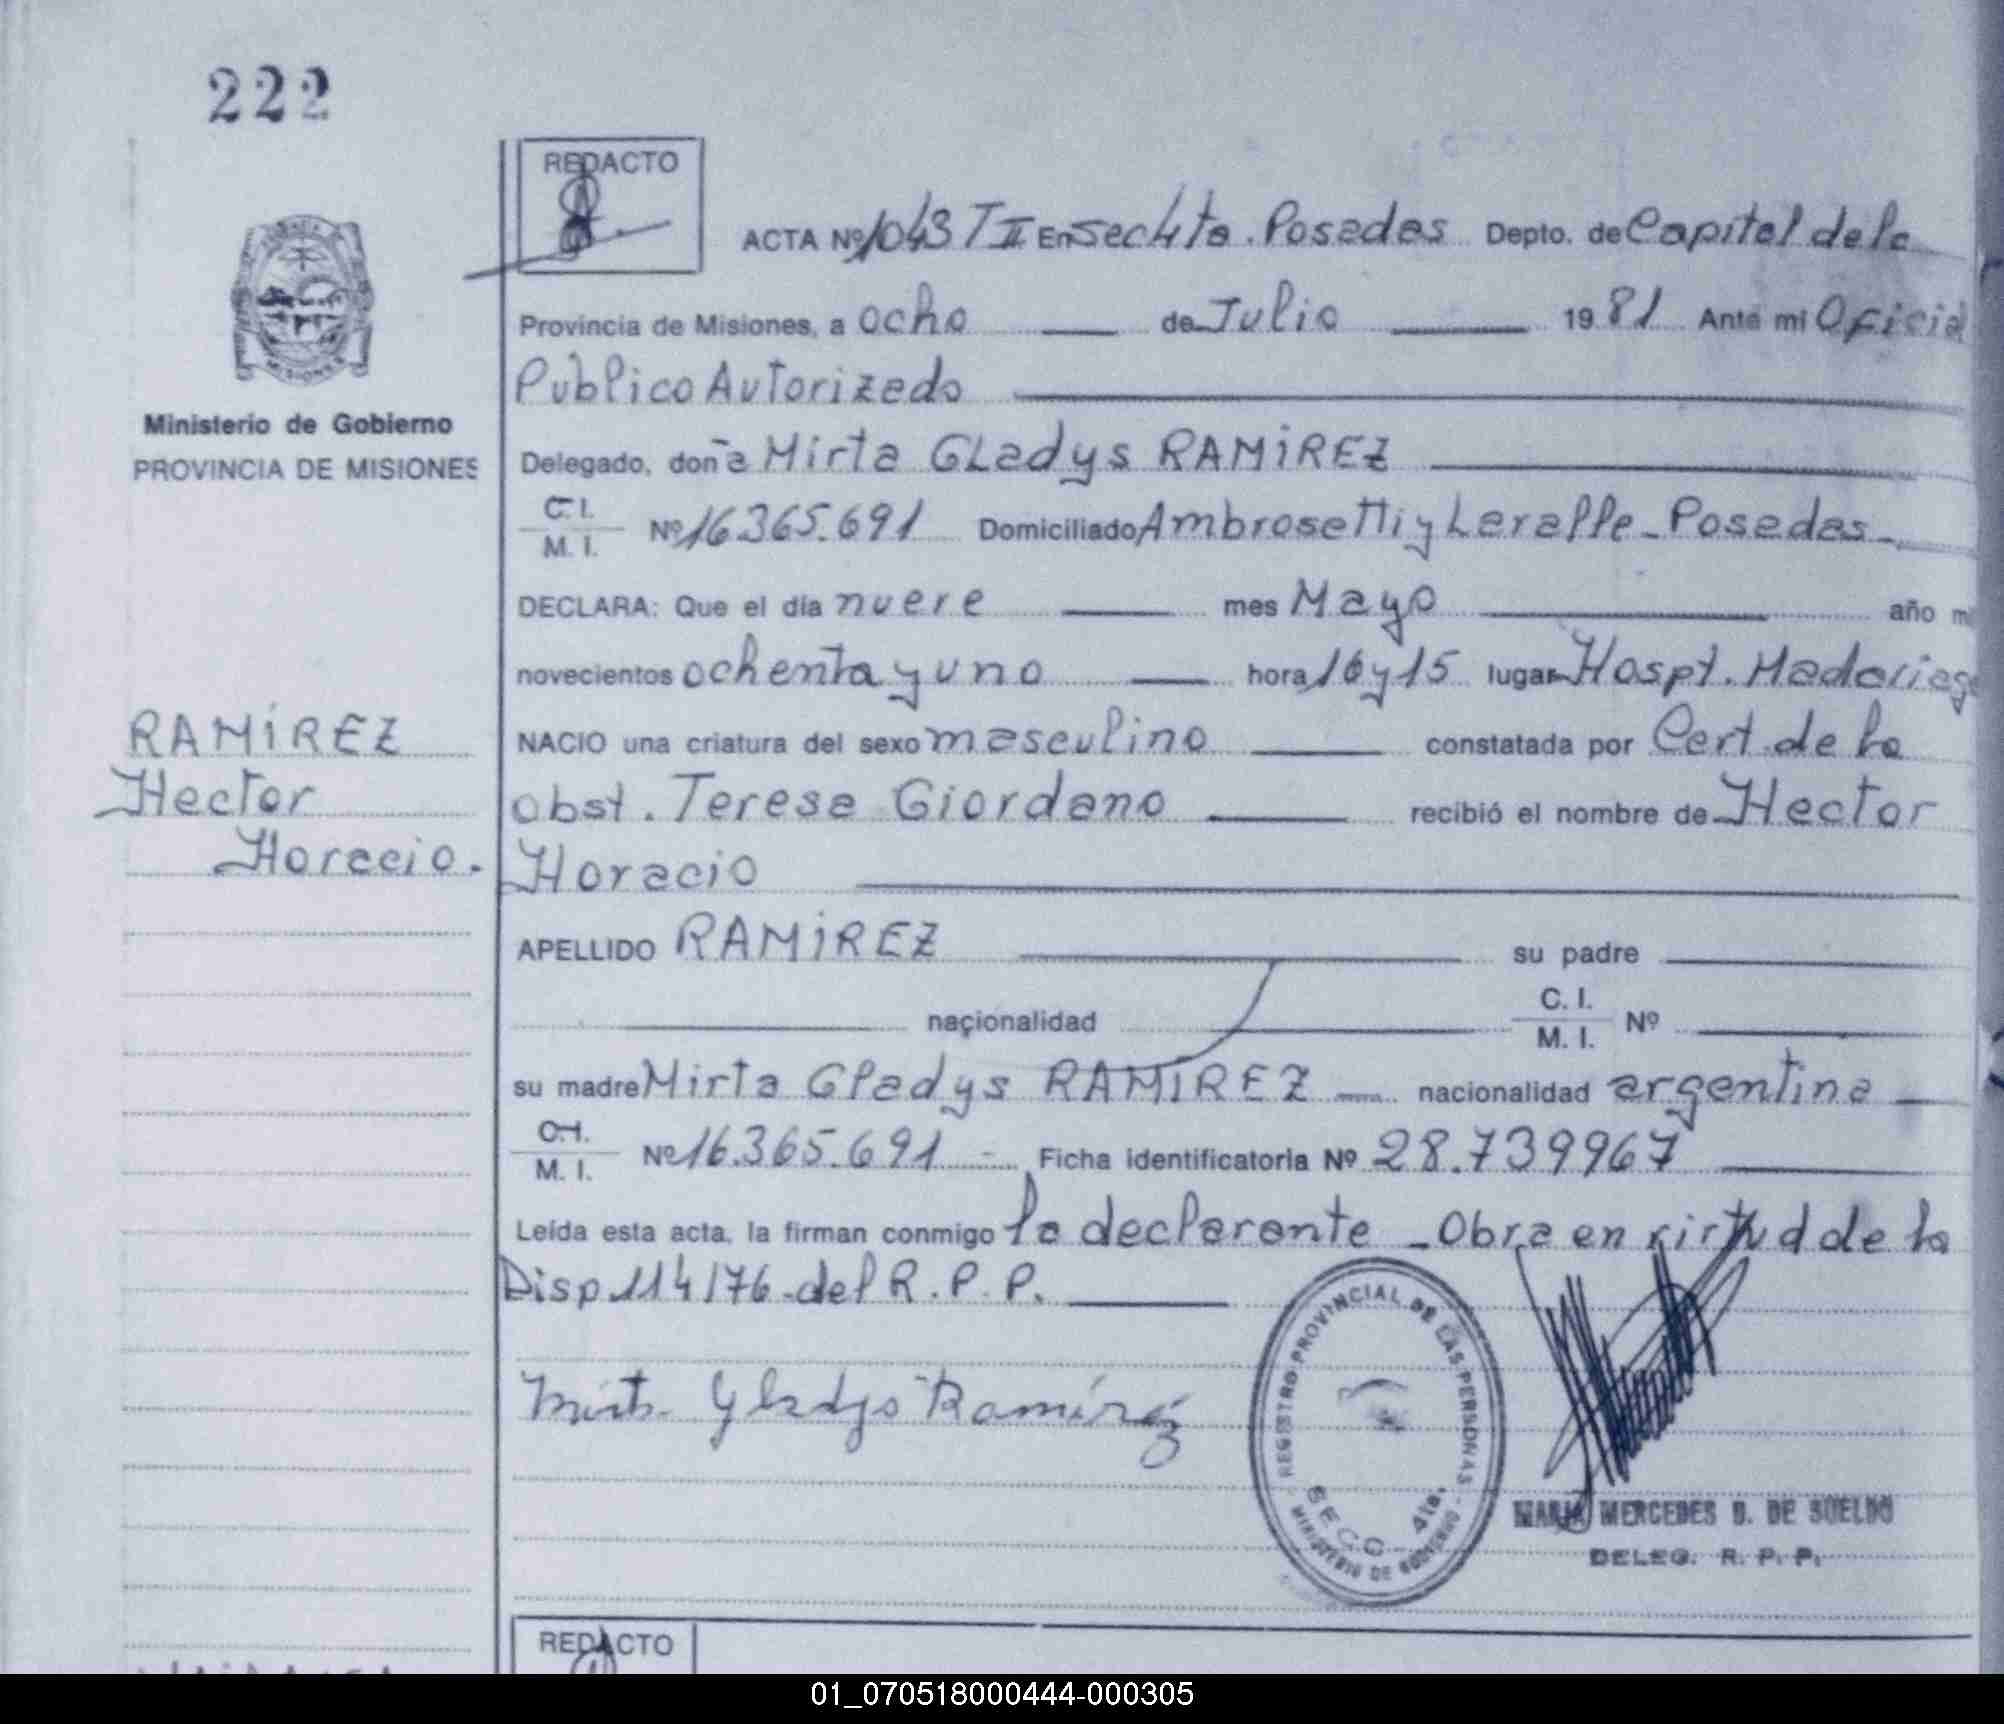 222
REDACTO
ACTA Nº 1043 T II En Sec 4ta. Posadas Depto. de Capital de la
Provincia de Misiones, a ocho de Julio 1981 Ante mi Oficial
Publico Autorizado
Ministerio de Gobierno
PROVINCIA DE MISIONES
Delegado, doña Mirta GLadys RAMIREZ
C. I.
M. I. Nº 16365.691 Domiciliado Ambrosetti y Posadas
DECLARA: Que el día nueve mes Mayo año mi
novecientos ochenta y uno hora 16 y 15 lugar Hospt. Madariaga
RAMIREZ
Hector
Horacio.
NACIO una criatura del sexo masculino constatada por Cert. de la
obst. Teresa Giordano recibió el nombre de Hector
Horacio
APELLIDO RAMIREZ su padre
nacionalidad C. I.
M. I. Nº
su madre Mirta Gladys RAMIREZ nacionalidad argentina
C. I.
M. I. Nº 16.365.691 Ficha identificatoria Nº 28.739967
Leída esta acta, la firman conmigo la declarante - Obra en virtud de la
Disp. 114/76 - del R. P. P.
Mirta Gladys Ramírez
REGISTRO PROVINCIAL DE LAS PERSONAS
SECC. 4ta.
MINISTERIO DE GOBIERNO
MARIA MERCEDES D. DE SUELDO
DELEG. R. P. P.
REDACTO
01_070518000444-000305